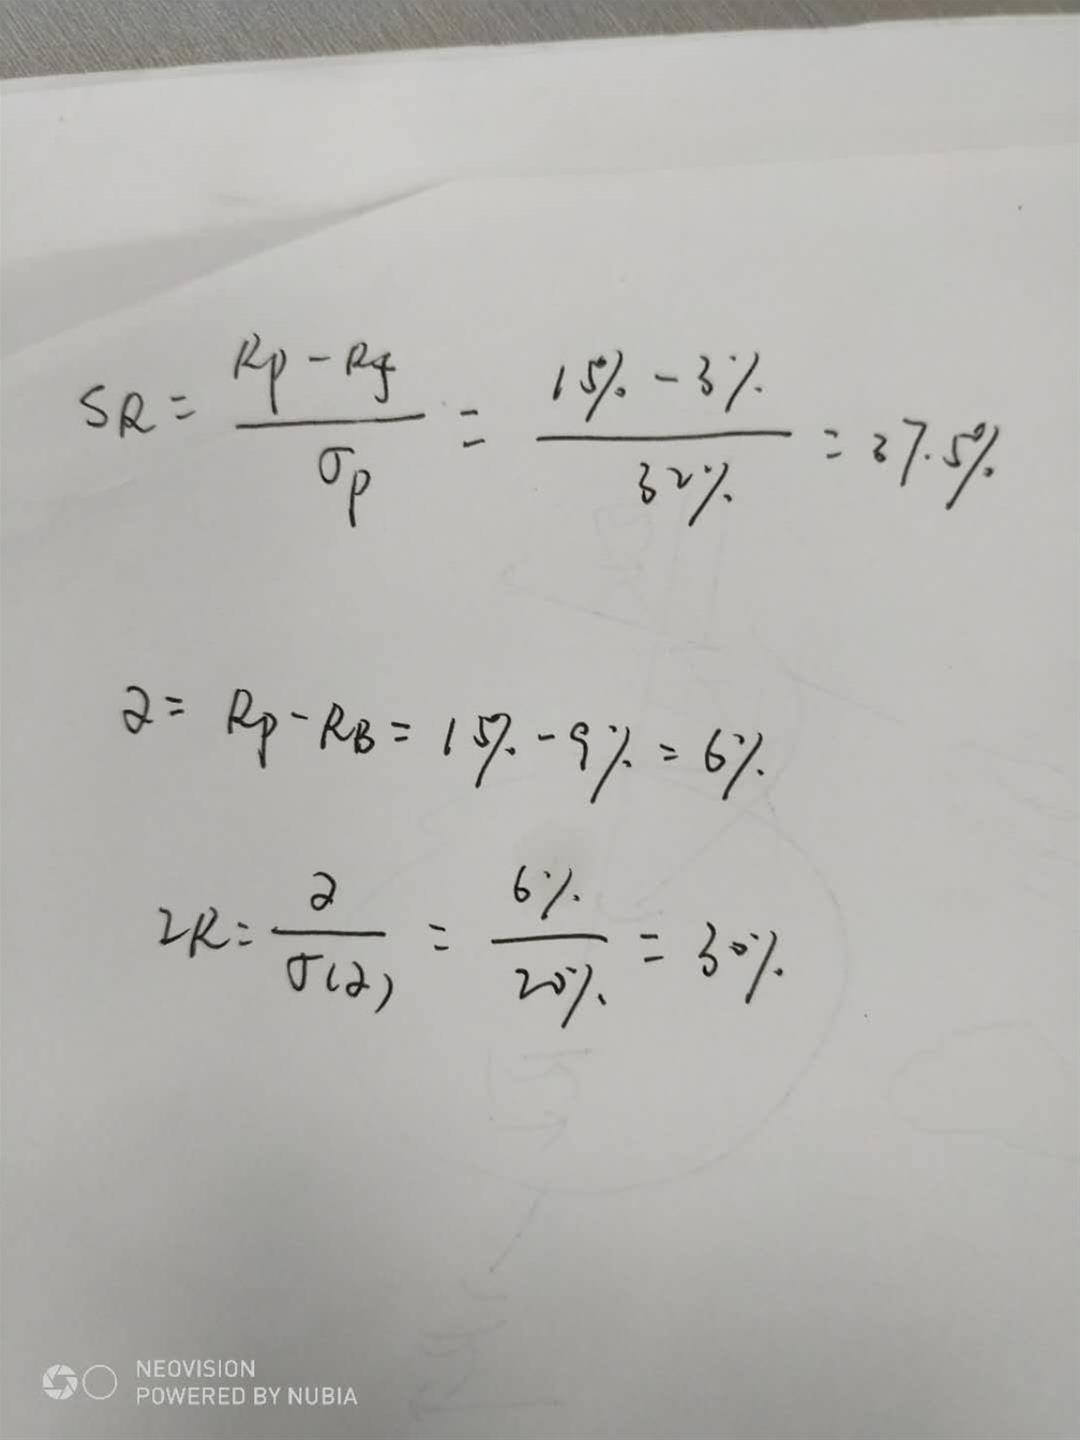 SR = (Rp - Rf) / σp = (15% - 3%) / 32% = 37.5%
α = Rp - RB = 15% - 9% = 6%
IR = α / σ(α) = 6% / 20% = 30%
NEOVISION
POWERED BY NUBIA